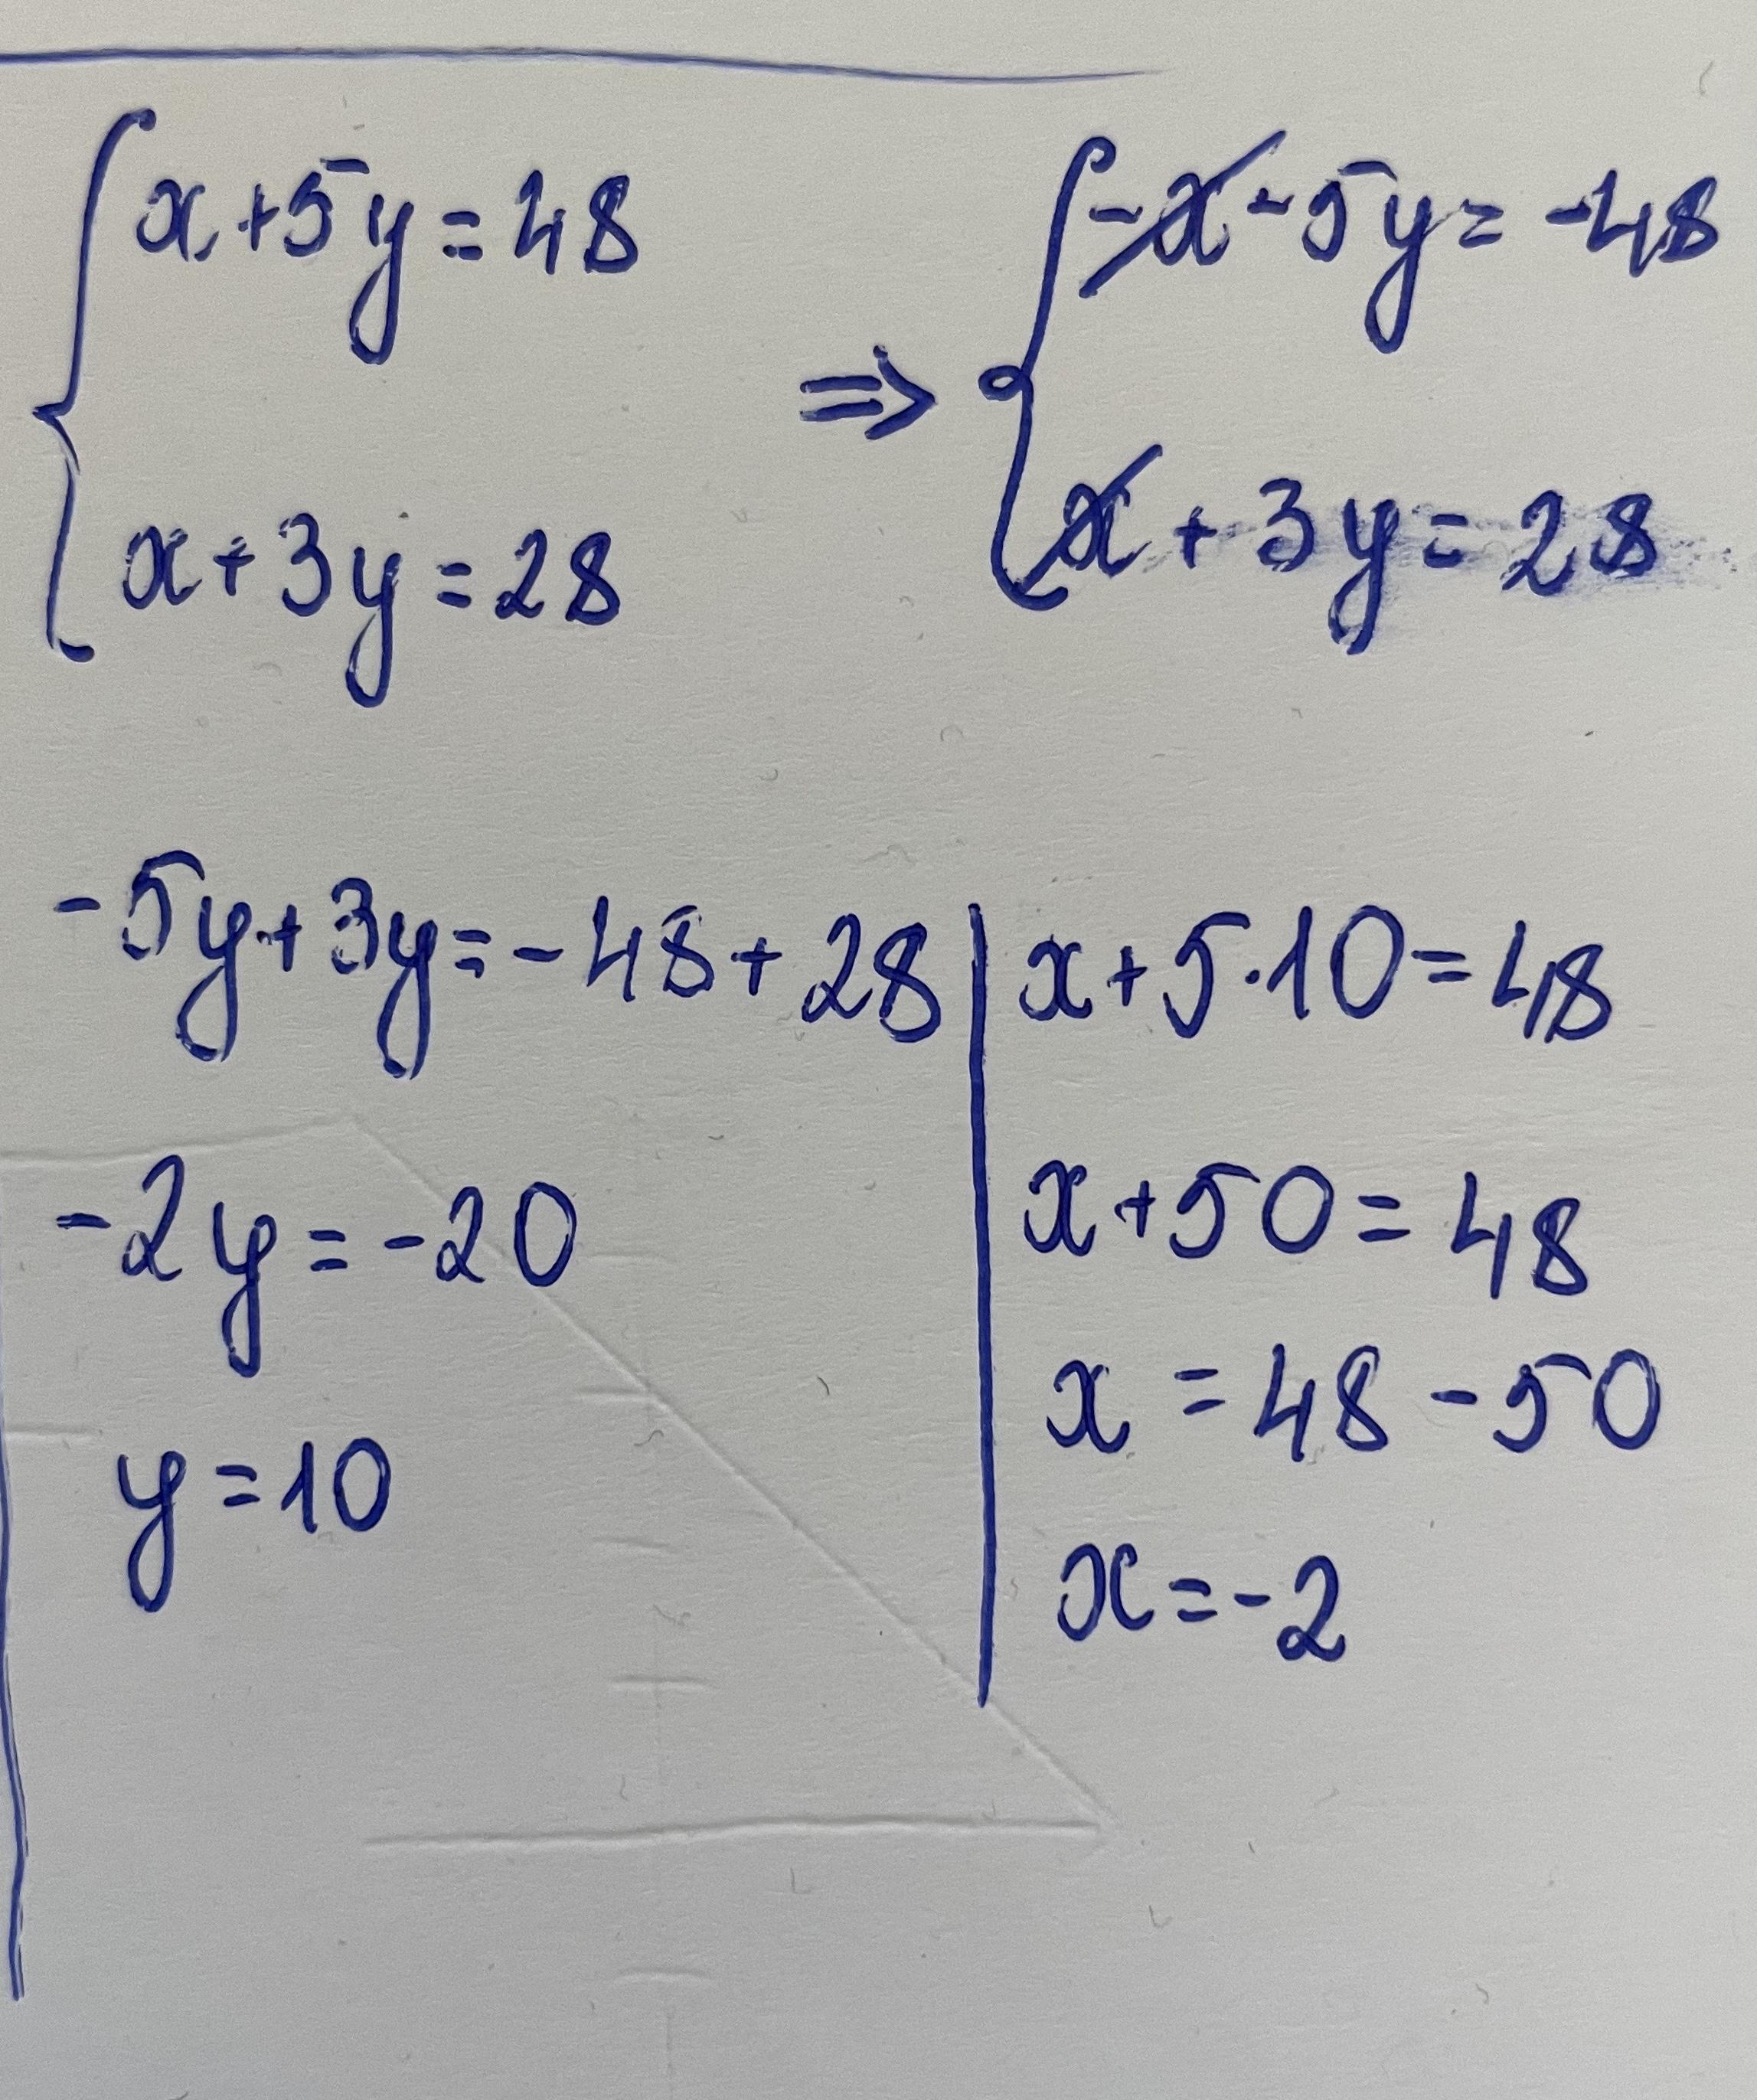 x+5y=48 ⇒ -x-5y=-48
x+3y=28 x+3y=28
-5y+3y=-48+28
-2y=-20
y=10
x+5·10=48
x+50=48
x=48-50
x=-2